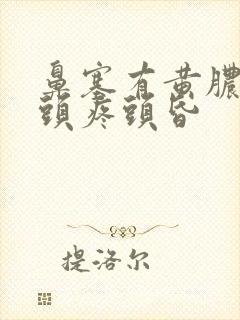 鼻塞有黄膿
頭疼頭昏
提洛尔